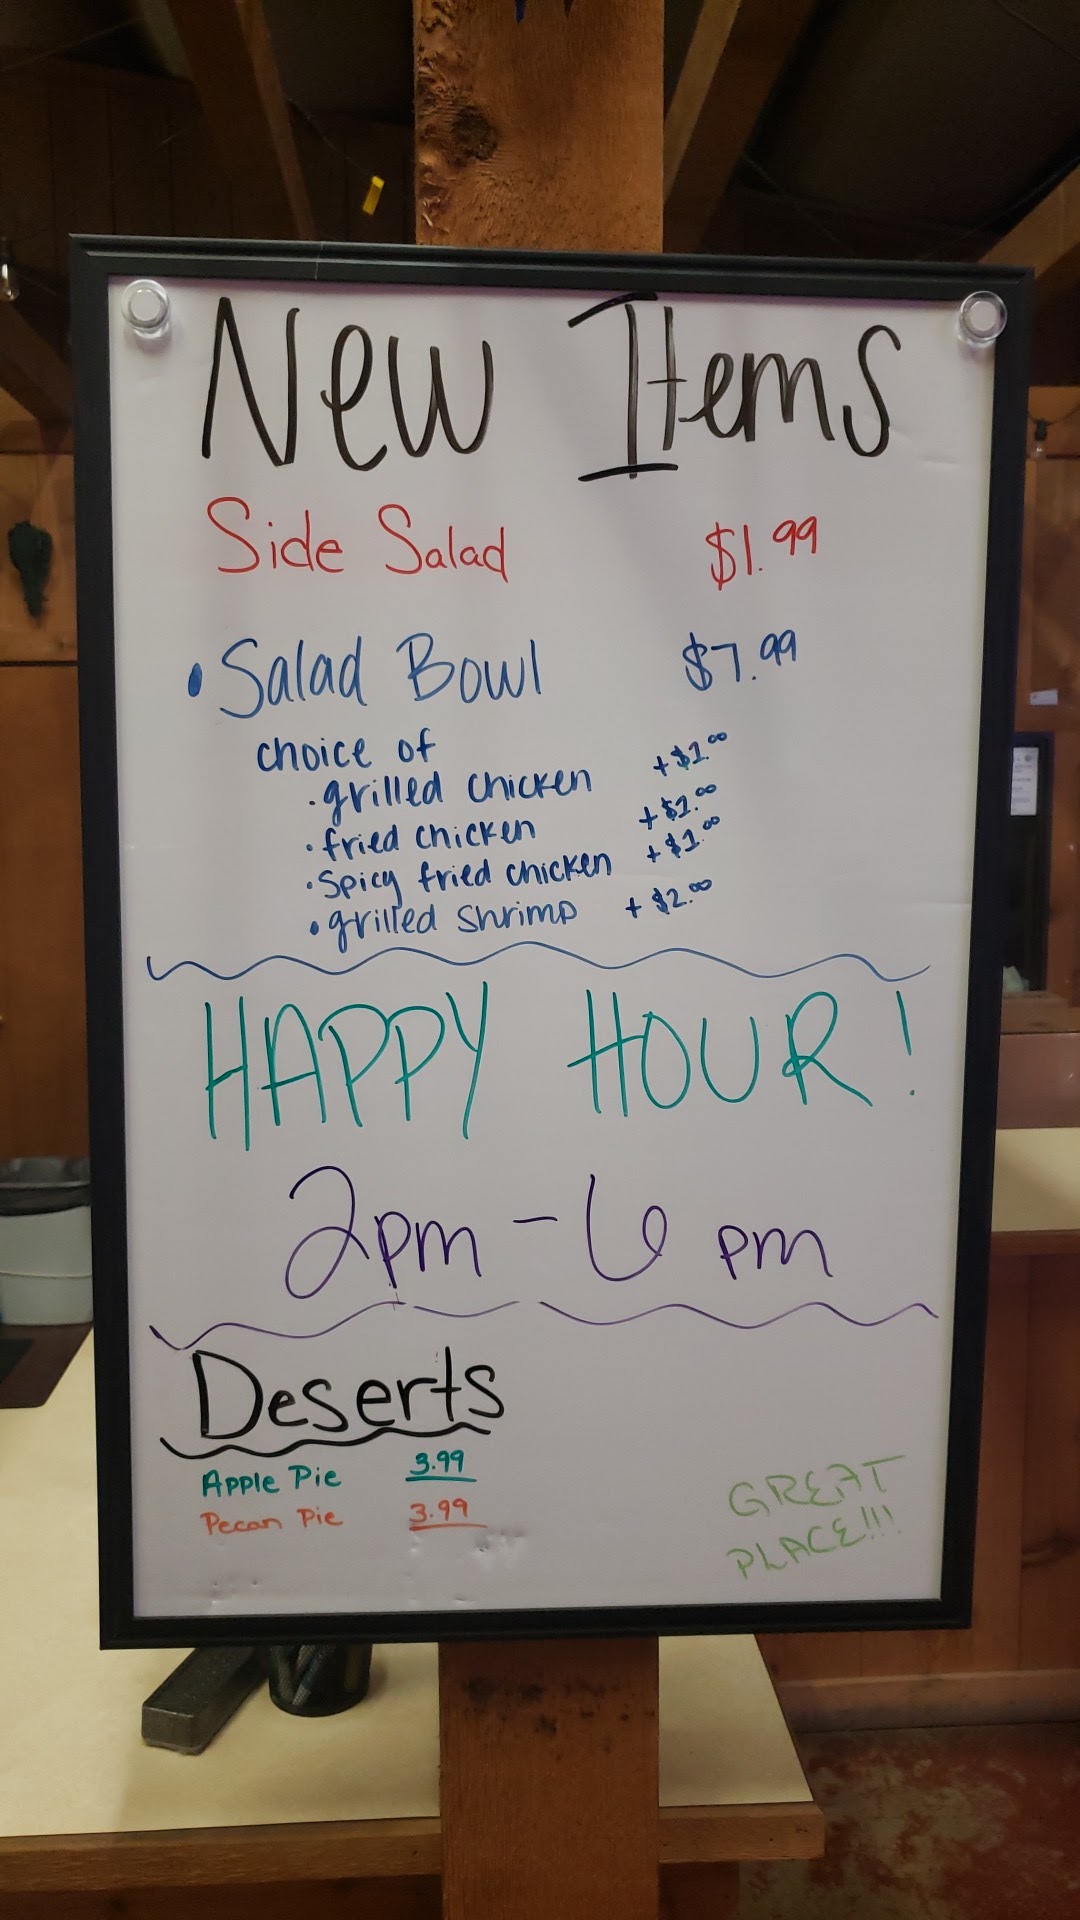 New Items
Side Salad $1.99
• Salad Bowl $7.99
choice of
• grilled chicken +$1.00
• fried chicken +$1.00
• Spicy fried chicken +$1.00
• grilled shrimp +$2.00
HAPPY HOUR!
2pm - 6pm
Deserts
Apple Pie 3.99
Pecan Pie 3.99
GREAT
PLACE!!!